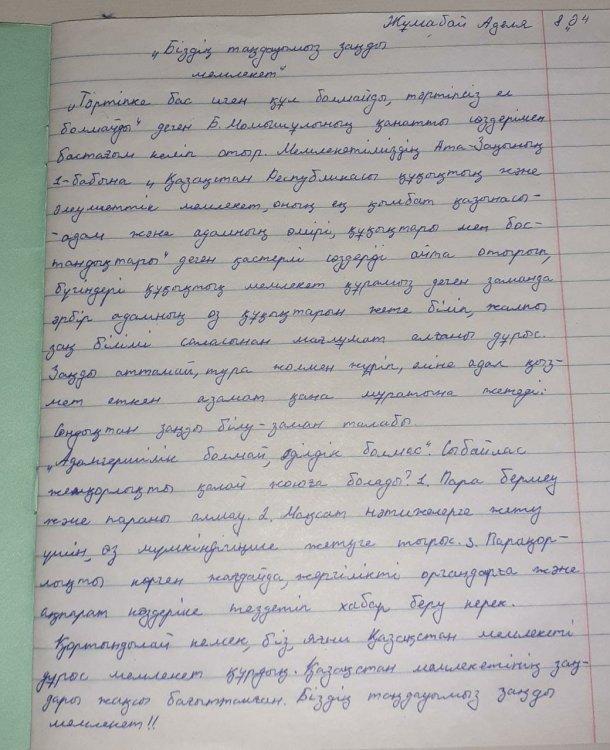 Жұмабай Аделя 8 "Ә"
„Біздің таңдауымыз заңды
мемлекет“
„Тәртіпке бас иген құл болмайды, тәртіпсіз ел
болмайды“ деген Б.Момышұлының қанатты сөздерімен
бастағым келіп отыр. Мемлекетіміздің Ата-Заңының
1-бабына „Қазақстан Республикасы құқықтық және
әлеуметтік мемлекет, оның ең қымбат қазынасы-
-адам және адамның өмірі, құқықтары мен бос-
тандықтары“ деген қастерлі сөздерді айта отырып,
бүгіндері құқықтық мемлекет құрамыз деген заманда
әрбір адамның өз құқықтарын жете біліп, жалпы
заң білімі саласынан мағлұмат алғаны дұрыс.
Заңды аттамай, тура жолмен жүріп, еліне адал қыз-
мет еткен азамат қана мұратына жетеді.
Сондықтан заңды білу-заман талабы.
„Адамгершілік болмай, әділдік болмас“. Сыбайлас
жемқорлықты қалай жоюға болады? 1. Пара бермеу
және параны алмау. 2. Мақсат нәтижелерге жету
үшін, өз мүмкіндігіңше жетуге тырыс. 3. Парақор-
лықты көрген жағдайда, жергілікті органдарға және
ақпарат көздеріне тездетіп хабар беру керек.
Қортындылай келмек, біз, яғни Қазақстан мемлекеті
дұрыс мемлекет құрдық. Қазақстан мемлекетінің заң-
дары жақсы бағытталған. Біздің таңдауымыз заңды
мемлекет!!